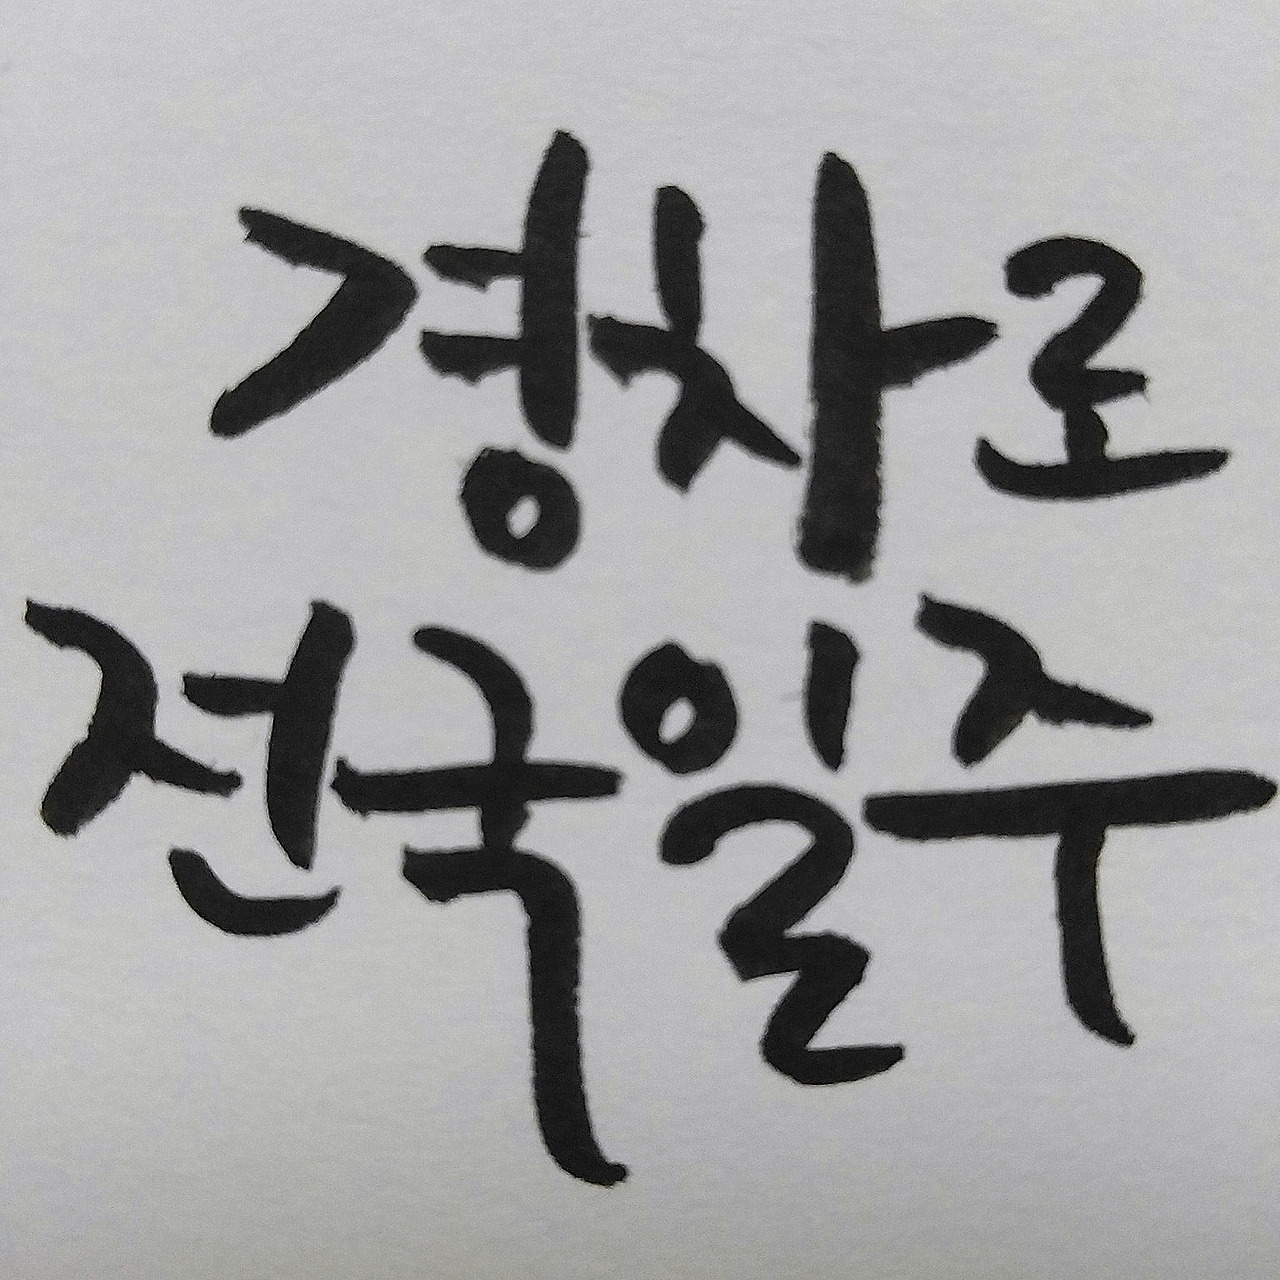 경차로
전국일주